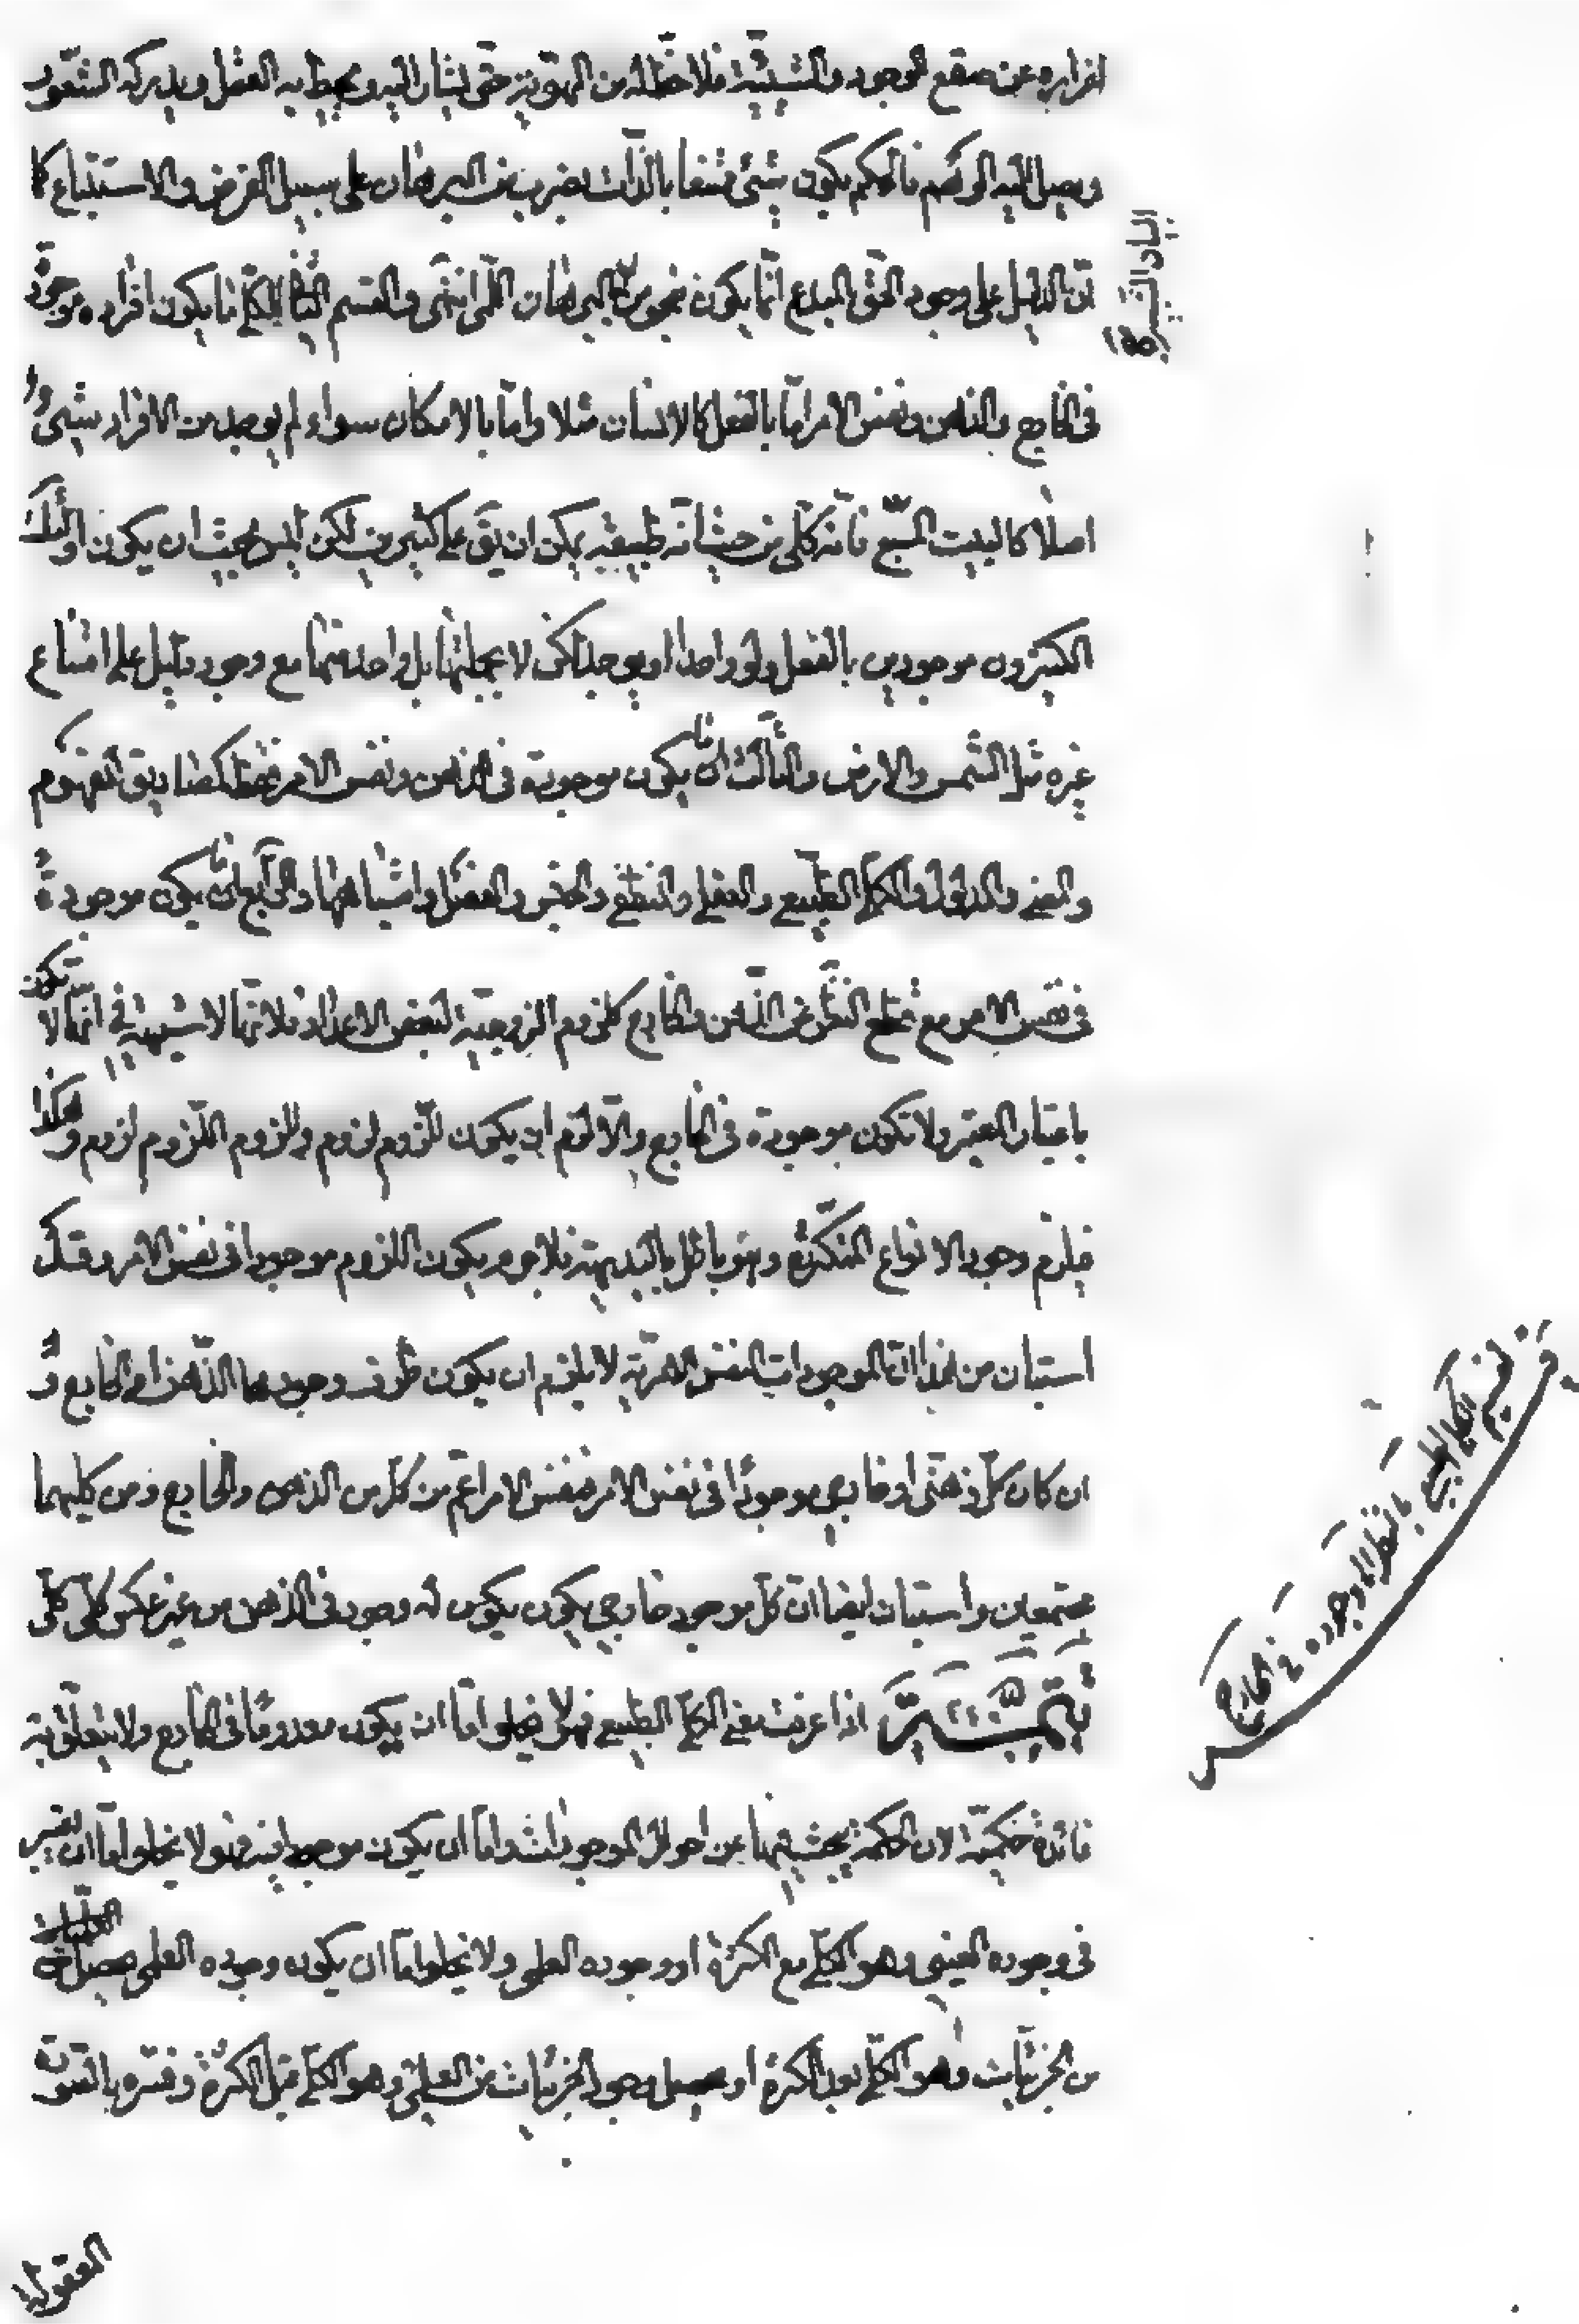 افراده عن صقع الوجود والشيئية فلا حظ له من الهوية حتى يشار اليه ويحيط به العقل ويدركه الشعور
ويصل اليه الوهم فالحكم بكون شيئ ممتنعا بالذات بضرب من البرهان على سبيل الفرض والاستتباع كا
ان الدليل على وجود الحق المبدع انما يكون بنحو من البرهان اللمى انتهى والقسم الثانى الكلى ما يكون افراده موجودة
فى الخارج والذهن ونفس الامر اما بالفعل كالانسان مثلا واما بالامكان سواء لم يوجد من الافراد شيئ
اصلا كالبيت المسبع فانه كلى من حيث انه طبيعة يمكن ان يق على كثيرين لكن ليس بحيث ان يكون اولئك
الكثيرون موجودين بالفعل ولو واحدا او يوجد لكن لا بجملتها بل واحد منها مع وجود دليل على امتناع
غيره مثل الشمس والارض والثالث ان ما يكون موجودة فى الذهن ونفس الامر فقط كمصاديق المفهوم
والمعنى والمدلول والكلى الطبيعى والعقلى والمنطقى والجنس والفصل واشباهها والرابع ان ما يكون موجودة
فى نفس الامر مع قطع النظر عن الذهن والخارج كلزوم الزوجية لبعض الاعداد فلانها لا شبهة فى انها لا تكون
باعتبار المعتبر ولا تكون موجودة فى الخارج والا لزم ان يكون للزوم لزوم وللزوم اللزوم لزوم وهكذا
فيلزم وجود الانواع المتكثرة وهو باطل بالبديهة فلا جرم يكون اللزوم موجودا فى نفس الامر وقد
استبان من هذا ان الموجودات النفس الامرية لا يلزم ان يكون ظرف وجودها الذهن او الخارج و
ان كان كل ذهنى او خارجى موجودا فى نفس الامر فنفس الامر اعم من كل من الذهن والخارج ومن كليهما
مجتمعين واستبان ايضا ان كل موجود خارجى يكون يكون له وجود فى الذهن من غير عكس كلى كلى
اذا عرفت معنى الكلى الطبيعى فهو لا يخلو اما ان يكون معدوما فى الخارج ولا يتعلق به
فائدة حكمية لان الحكمة يبحث فيها عن احوال الموجودات واما ان يكون موجودا فيه فهو لا يخلو اما ان يعتبر
فى وجوده العينى وهو الكلى مع الكثرة او وجوده العلمى ولا يخلو اما ان يكون وجوده العلمى
من الجزئيات وهو الكلى بعد الكثرة او وجود الجزئيات من العلمى وهو الكلى قبل الكثرة وفسره بالصورة
المعقولة
فى تقسيم الكلى الطبيعى بالنظر الى وجوده فى الخارج